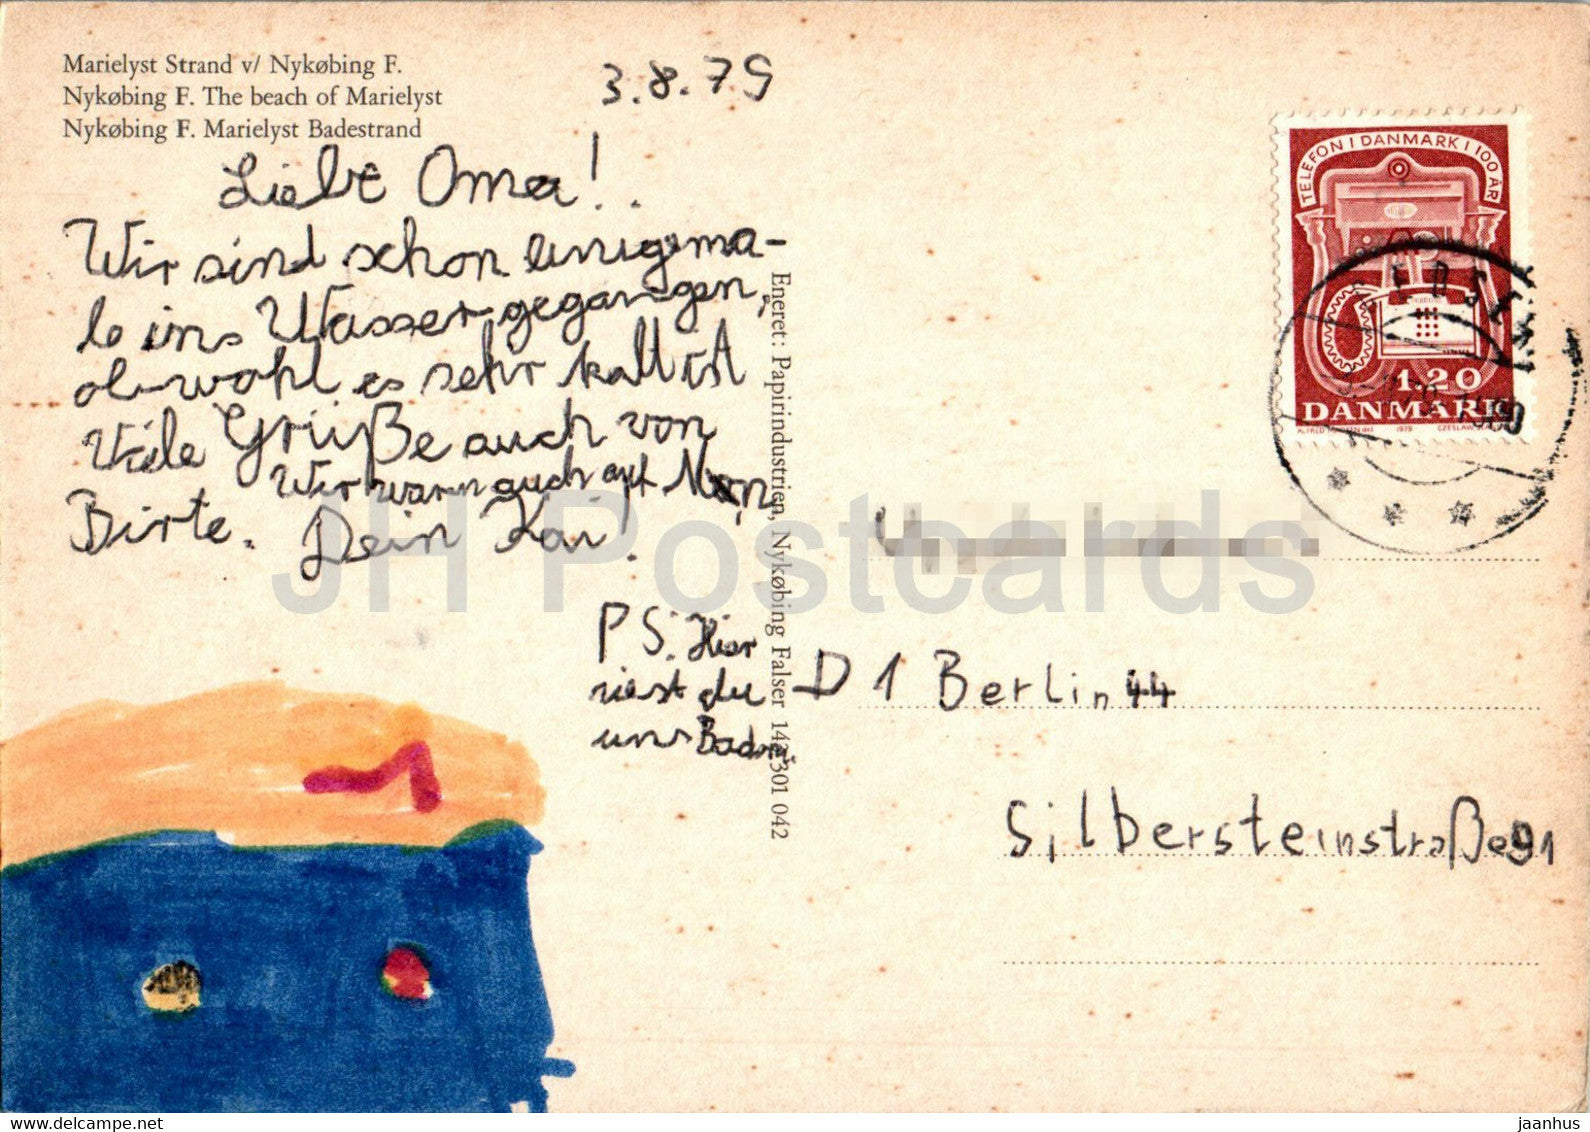 Marielyst Strand v/ Nykøbing F.
Nykøbing F. The beach of Marielyst
Nykøbing F. Marielyst Badestrand
3.8.79
Liebe Oma!
Wir sind schon einigema-
le ins Wasser gegangen,
obwohl es sehr kalt ist
Viele Grüße auch von
Wir warn auch auf Mön
Birte. Dein Kai!
PS. Hier
siest du
uns Baden
Eneret: Papirindustrien, Nykøbing Falser 142 301 042
TELEFON I DANMARK I 100 ÅR
1.20
DANMARK
1979
D 1 Berlin 44
Silbersteinstraße 91
JH Postcards
jaanhus
www.delcampe.net